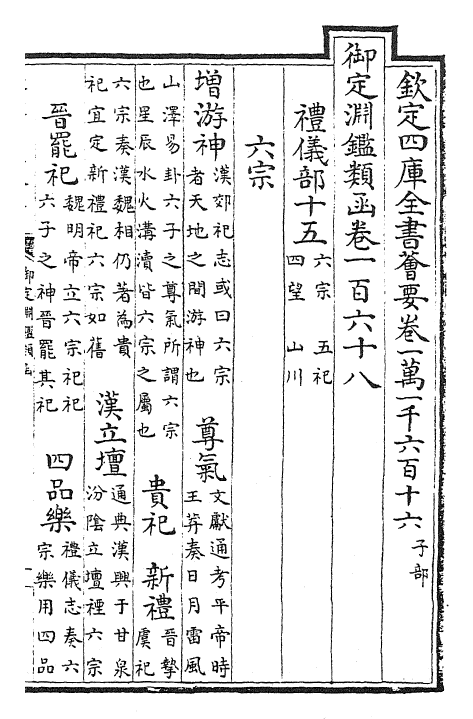 欽定四庫全書薈要卷一萬一千六百十六 子部
御定淵鑑類函卷一百六十八
禮儀部十五 六宗 五祀
四望 山川
六宗
增游神 漢郊祀志或曰六宗
者天地之間游神也
尊氣 文獻通考平帝時
王莽奏日月雷風
山澤易卦六子之尊氣所謂六宗
也星辰水火溝瀆皆六宗之屬也
貴祀 新禮 晉摯
虞祀
六宗奏漢魏相仍著為貴
祀宜定新禮祀六宗如舊
漢立壇 通典漢興于甘泉
汾陰立壇禋六宗
晉罷祀 魏明帝立六宗祀祀
六子之神晉罷其祀
四品樂 禮儀志奏六
宗樂用四品